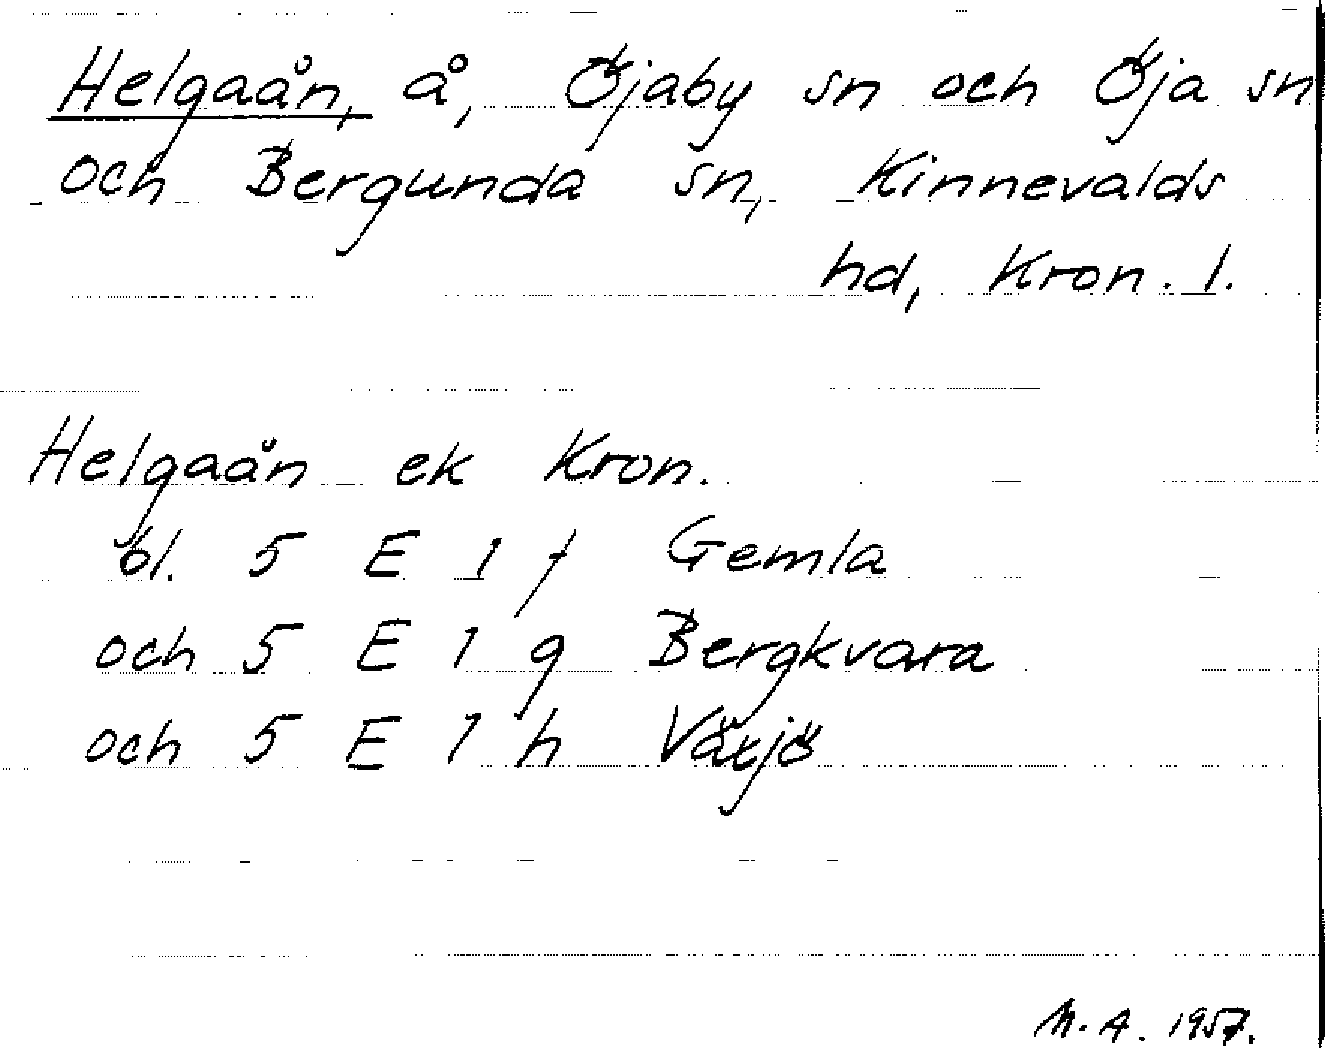 Helgaån, å, Öjaby sn och Öja sn
och Bergunda sn, Kinnevalds
hd, Kron. l.
Helgaån ek Kron.
bl. 5 E 1 f Gemla
och 5 E 1 g Bergkvara
och 5 E 1 h Växjö
M. A. 1957.